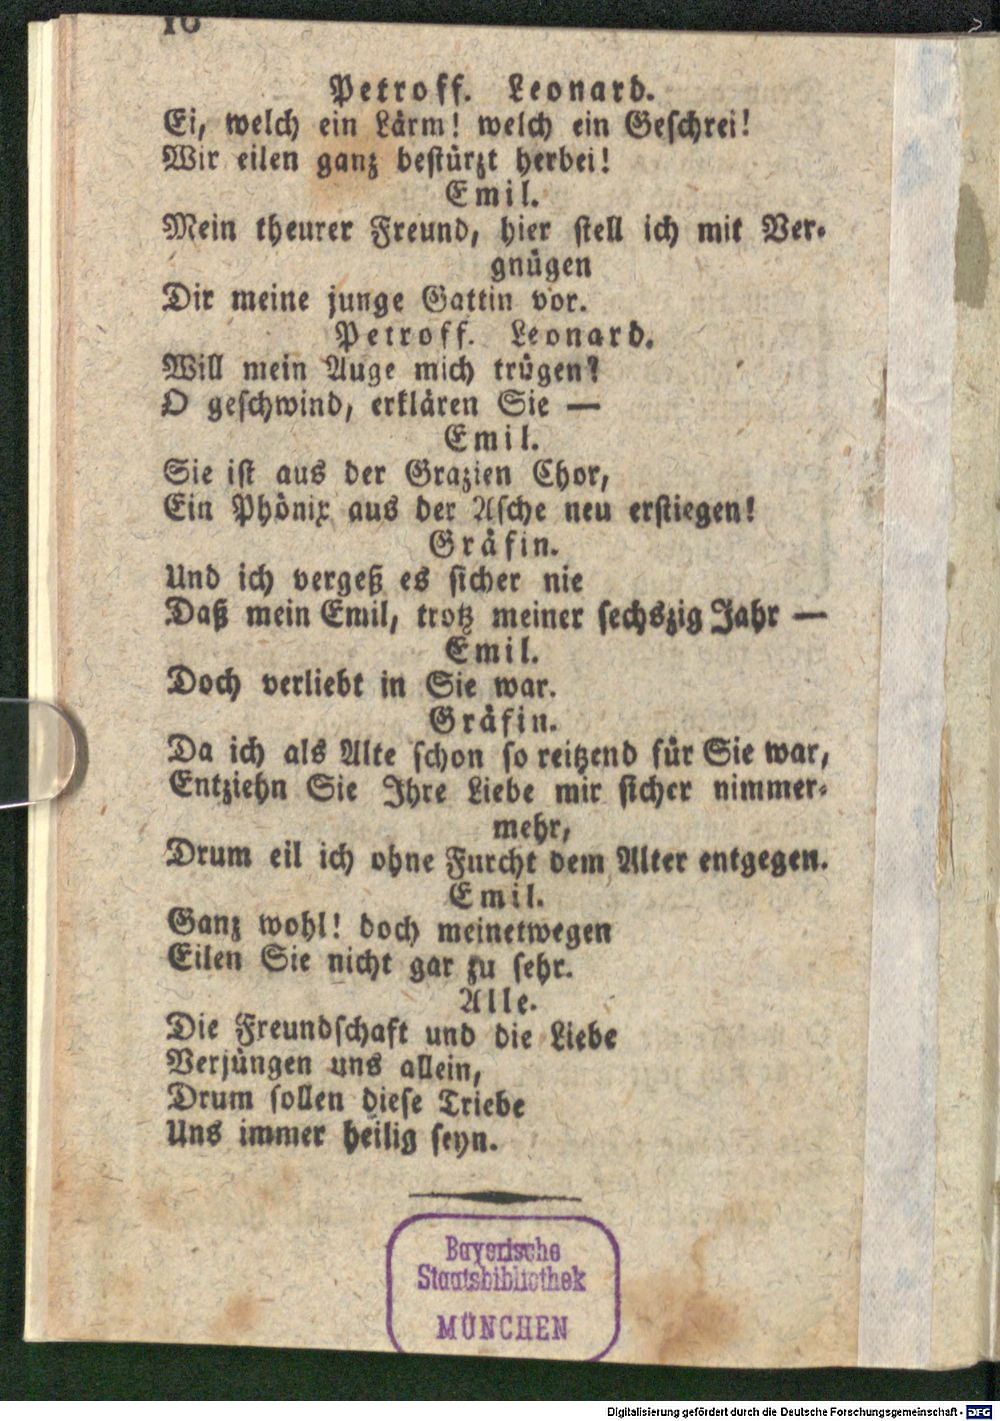 16
Petroff. Leonard.
Ei, welch ein Lärm! welch ein Geschrei!
Wir eilen ganz bestürzt herbei!
Emil.
Mein theurer Freund, hier stell ich mit Ver-
gnügen
Dir meine junge Gattin vor.
Petroff. Leonard.
Will mein Auge mich trügen?
O geschwind, erklären Sie —
Emil.
Sie ist aus der Grazien Chor,
Ein Phönix aus der Asche neu erstiegen!
Gräfin.
Und ich vergeß es sicher nie
Daß mein Emil, trotz meiner sechszig Jahr —
Emil.
Doch verliebt in Sie war.
Gräfin.
Da ich als Alte schon so reitzend für Sie war,
Entziehn Sie Ihre Liebe mir sicher nimmer-
mehr,
Drum eil ich ohne Furcht dem Alter entgegen.
Emil.
Ganz wohl! doch meinetwegen
Eilen Sie nicht gar zu sehr.
Alle.
Die Freundschaft und die Liebe
Verjüngen uns allein,
Drum sollen diese Triebe
Uns immer heilig seyn.
Bayerische
Staatsbibliothek
MÜNCHEN
Digitalisierung gefördert durch die Deutsche Forschungsgemeinschaft - DFG